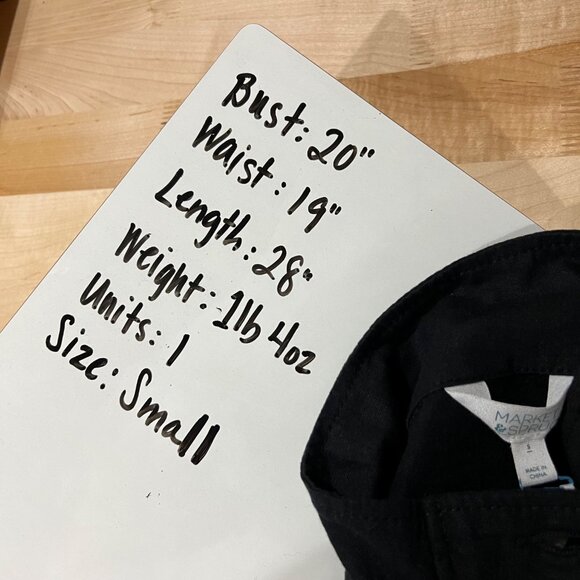 Bust: 20"
Waist: 19"
Length: 28"
Weight: 1lb 4oz
Units: 1
Size: Small
MARKET
& SPRUCE
MADE IN
CHINA